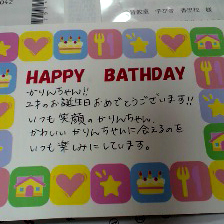 HAPPY BATHDAY
かりんちゃん!!
2才のお誕生日おめでとうございます!!
いつも笑顔のかりんちゃん。
かわいい かりんちゃんに会えるのを
いつも楽しみにしています。